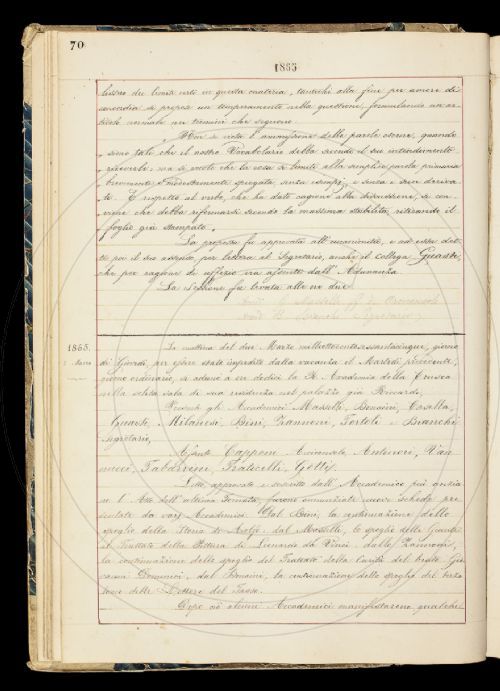 70
1865
lasciare dei limiti certi in questa materia, tantoché alla fine per amore di
concordia si propose un temperamento nella questione, formulando un ar-
ticolo normale nei termini che seguono.
Non si vieta l'ammissione delle parole oscene, quando
siano tali che il nostro Vocabolario debba secondo il suo intendimento
riceverle; ma si vuole che la cosa si limiti alla semplice parola primaria
brevemente e modestamente spiegata, senza esempj, e senza i suoi deriva-
ti. E rispetto al verbo, che ha dato cagione alla discussione, si con-
viene che debba riformarsi secondo la massima stabilita, ritirando il
foglio già stampato.
La proposta fu approvata all'unanimità, e ad essa det-
te poi il suo assenso, per lettera il Segretario, anche il collega Guasti,
che per ragione di uffizio era assente dall'Adunanza.
La Sessione fu levata alle ore due
1865.
2. Marzo
La mattina del due Marzo milleottocentosessantacinque, giorno
di Giovedì, per essere stata impedita dalla vacanza il Martedì precedente,
giorno ordinario, si adunò a ore dodici la R. Accademia della Crusca
nella solita sala di sua residenza nel palazzo già Riccardi.
Presenti gli Accademici Maselli, Bonaini, Casella,
Guasti, Milanesi, Bini, Zannoni, Tortoli e Bianchi
Segretario,
Assenti Capponi Arciconsolo, Antinori, Van-
nucci, Tabarrini, Fraticelli, Gotti.
Letto, approvato e sottoscritto dall'Accademico più anzia-
no l'Atto dell'ultima Tornata, furono annunziate nuove schede pre-
sentate da varj Accademici: Dal Bini, la continuazione dello
spoglio della Storia di Aiolfo: dal Masselli, lo spoglio delle Giunte
al Trattato della Pittura di Lionardo da Vinci: dallo Zannoni,
la continuazione dello spoglio del Trattato della Carità del beato Gio-
vanni Dominici: dal Bonaini, la continuazione dello spoglio del terzo
tomo delle Lettere del Tasso.
Dopo ciò alcuni Accademici manifestarono, qualche